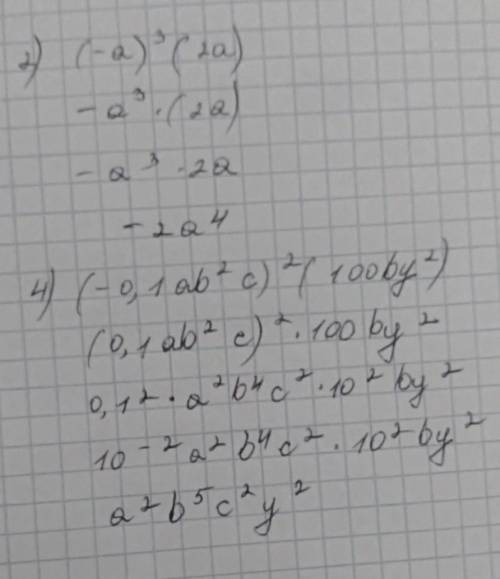 2) (-a)³(2a)
-a³·(2a)
-a³·2a
-2a⁴
4) (-0,1ab²c)²(100by²)
(0,1ab²c)²·100by²
0,1²·a²b⁴c²·10²by²
10⁻²a²b⁴c²·10²by²
a²b⁵c²y²